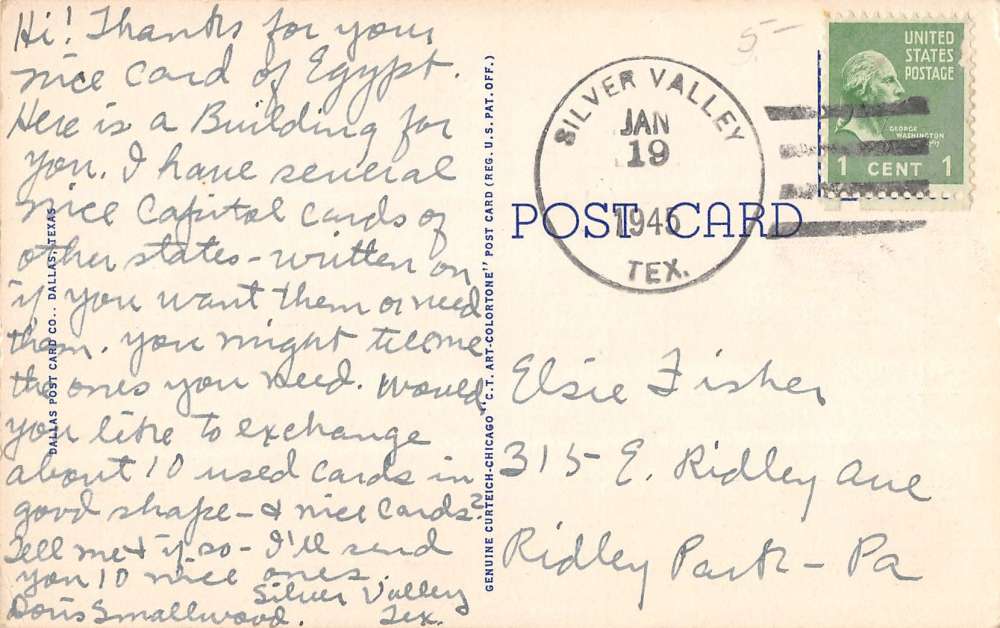 Hi! Thanks for your
nice card of Egypt.
Here is a Building for
you. I have several
nice Capitol cards of
other states - written on
if you want them or need
them. You might tell me
the ones you need. Would
you like to exchange
about 10 used cards in
good shape - & nice cards?
Tell me & if so - I'll send
you 10 nice ones.
Doris Smallwood.
Silver Valley
Tex.
DALLAS POST CARD CO., DALLAS, TEXAS
GENUINE CURTEICH-CHICAGO "C.T. ART-COLORTONE" POST CARD (REG. U.S. PAT. OFF.)
5-
SILVER VALLEY
JAN
19
1945
TEX.
UNITED
STATES
POSTAGE
GEORGE
WASHINGTON
1 CENT 1
POST CARD
Elsie Fisher
315 E. Ridley Ave
Ridley Park - Pa